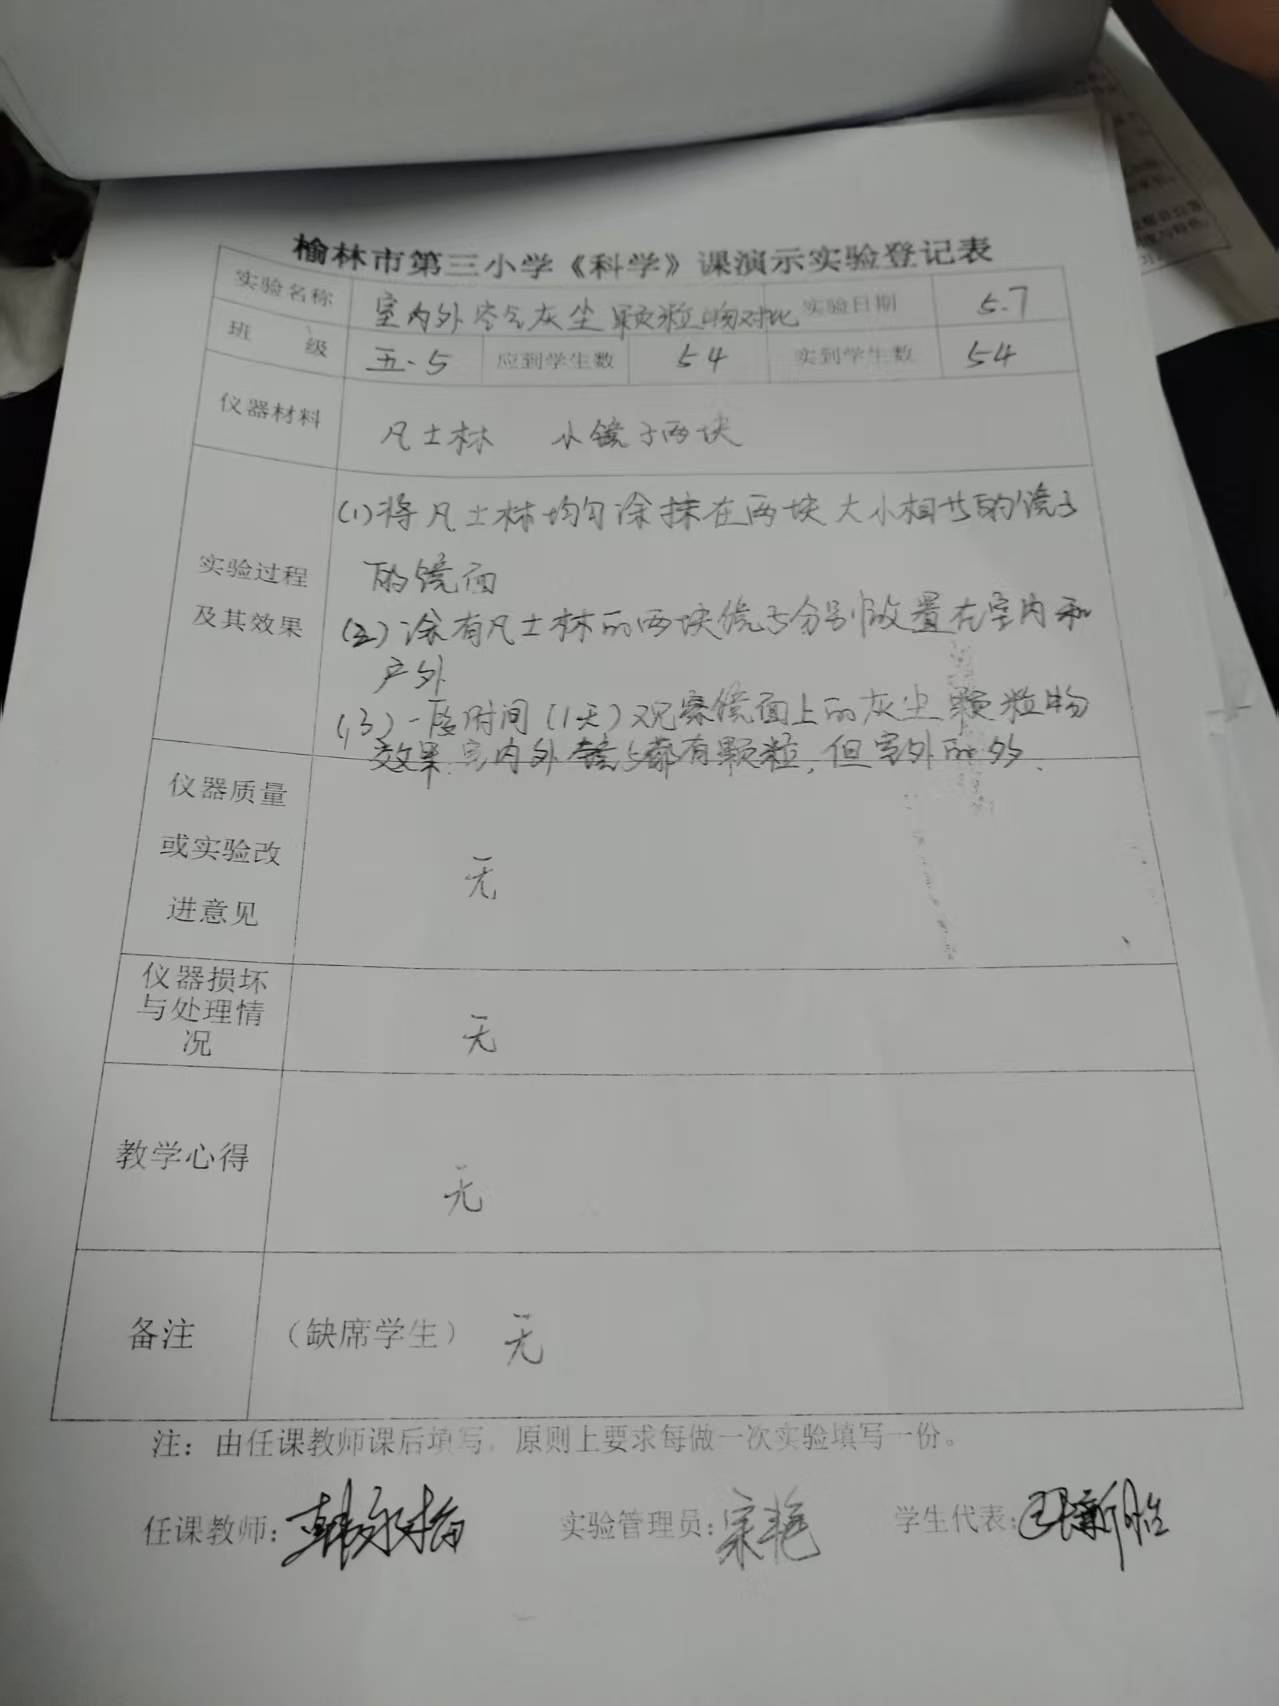 榆林市第三小学《科学》课演示实验登记表
实验名称 室内外空气灰尘颗粒物对比 实验日期 5.7
班 级 五.5 应到学生数 54 实到学生数 54
仪器材料 凡士林 小镜子两块
(1)将凡士林均匀涂抹在两块大小相共的镜子
的镜面
实验过程
及其效果
(2)涂有凡士林的两块镜子分别放置在室内和
户外
(3)一段时间(1天)观察镜面上的灰尘颗粒物
效果:室内外镜子都有颗粒,但室外的多.
仪器质量
或实验改
进意见
无
仪器损坏
与处理情
况
无
教学心得 无
备注 (缺席学生) 无
注:由任课教师课后填写,原则上要求每做一次实验填写一份。
任课教师: 实验管理员:宋艳 学生代表: